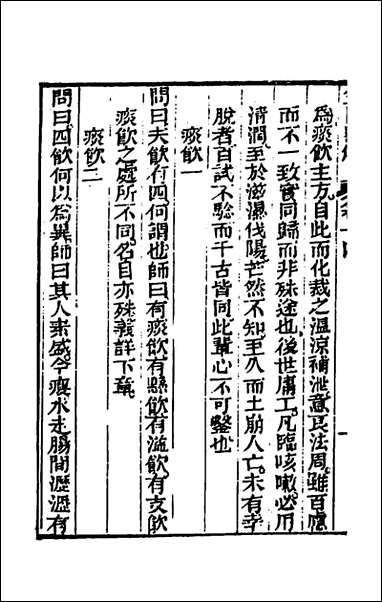 為痰飲主方自此而化裁之溫涼補泄意良法周雖百慮
而不一致實同歸而非殊途也後世庸工凡臨咳嗽必用
清潤至於滋濕伐陽茫然不知至久而土崩人亡未有幸
脫者百試不驗而千古皆同此輩心不可鑿也
痰飲一
問曰夫飲有四何謂也師曰有痰飲有懸飲有溢飲有支飲
痰飲之處所不同名目亦殊義詳下章
痰飲二
問曰四飲何以為異師曰其人素盛今瘦水走腸間瀝瀝有